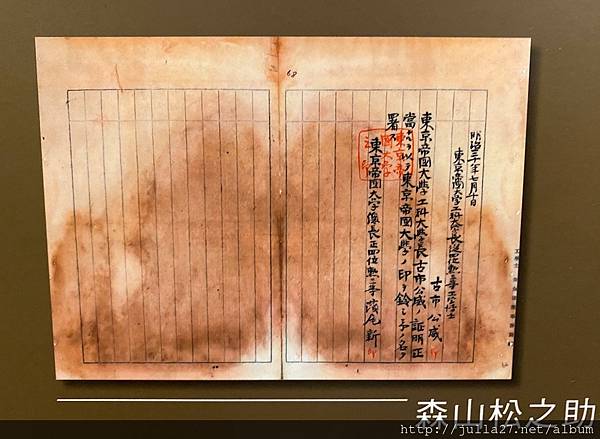 68
明治三十年七月十日
東京帝國大學工科大學長從四位勲三等工學博士
古市公威
東京帝國大學工科大學長古市公威ノ証明正
當ナルヲ以テ東京帝國大學ノ印ヲ鈐シ予ノ名ヲ
署ス
東京帝國大學總長正四位勲二等濱尾新
東京帝國大學之印
森山松之助
http://julia27.net/album